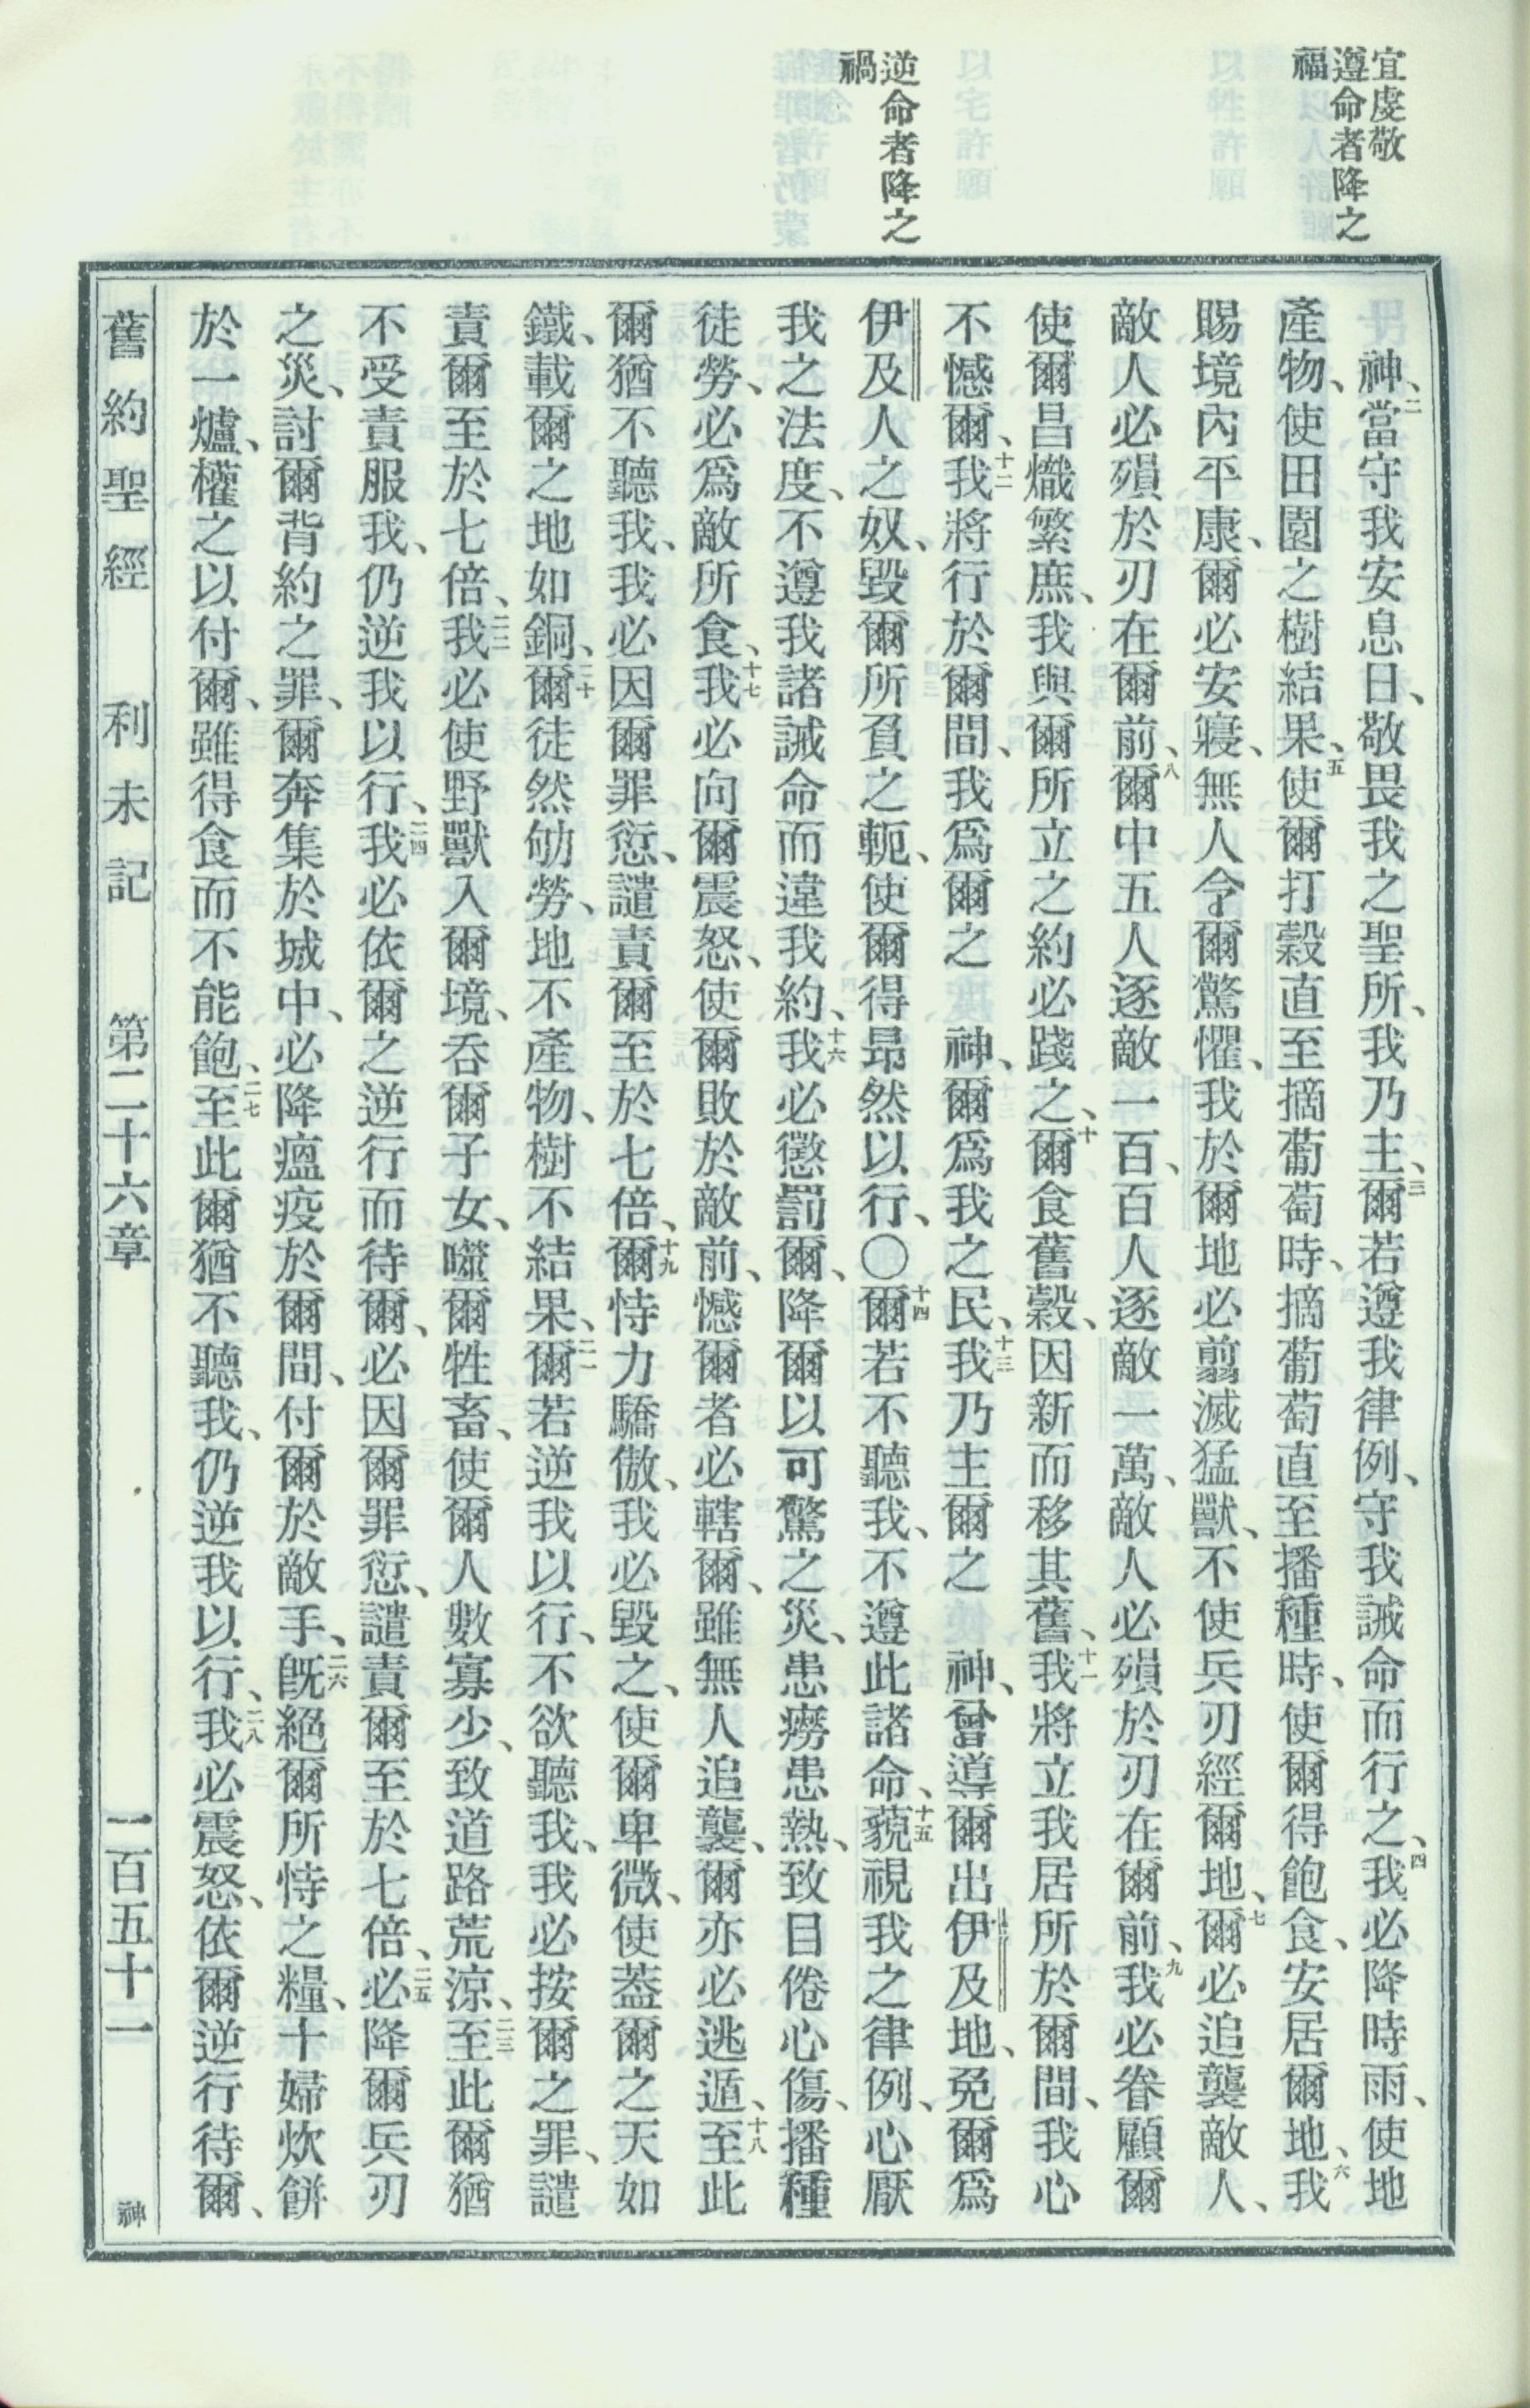 宜虔敬
遵命者降之
福
逆命者降之
禍
神、二當守我安息日、敬畏我之聖所、我乃主、三爾若遵我律例、守我誡命而行之、四我必降時雨、使地
產物、使田園之樹結果、五使爾打穀直至摘葡萄時、摘葡萄直至播種時、使爾得飽食、安居爾地、六我
賜境內平康、爾必安寢、無人令爾驚懼、我於爾地必翦滅猛獸、不使兵刃經爾地、七爾必追襲敵人、
敵人必殞於刃在爾前、八爾中五人逐敵一百、百人逐敵一萬、敵人必殞於刃在爾前、九我必眷顧爾
使爾昌熾繁庶、我與爾所立之約必踐之、十爾食舊穀、因新而移其舊、十一我將立我居所於爾間、我心
不憾爾、十二我將行於爾間、我爲爾之　神、爾爲我之民、十三我乃主爾之　神、曾導爾出伊及地、免爾爲
伊及人之奴、毀爾所負之軛、使爾得昂然以行、〇十四爾若不聽我、不遵此諸命、十五藐視我之律例、心厭
我之法度、不遵我諸誡命而違我約、十六我必懲罰爾、降爾以可驚之災、患癆患熱、致目倦心傷、播種
徒勞、必爲敵所食、十七我必向爾震怒、使爾敗於敵前、憾爾者必轄爾、雖無人追襲、爾亦必逃遁、十八至此
爾猶不聽我、我必因爾罪愆、譴責爾至於七倍、十九爾恃力驕傲、我必毀之、使爾卑微、使蓋爾之天如
鐵、載爾之地如銅、二十爾徒然劬勞、地不產物、樹不結果、二一爾若逆我以行、不欲聽我、我必按爾之罪、譴
責爾至於七倍、二二我必使野獸入爾境、吞爾子女、噬爾牲畜、使爾人數寡少、致道路荒涼、二三至此爾猶
不受責服我、仍逆我以行、二四我必依爾之逆行而待爾、必因爾罪愆、譴責爾至於七倍、二五必降爾兵刃
之災、討爾背約之罪、爾奔集於城中、必降瘟疫於爾間、付爾於敵手、二六旣絕爾所恃之糧、十婦炊餅
於一爐、權之以付爾、雖得食而不能飽、二七至此爾猶不聽我、仍逆我以行、二八我必震怒、依爾逆行待爾、
舊約聖經　利未記　第二十六章　一百五十一　神